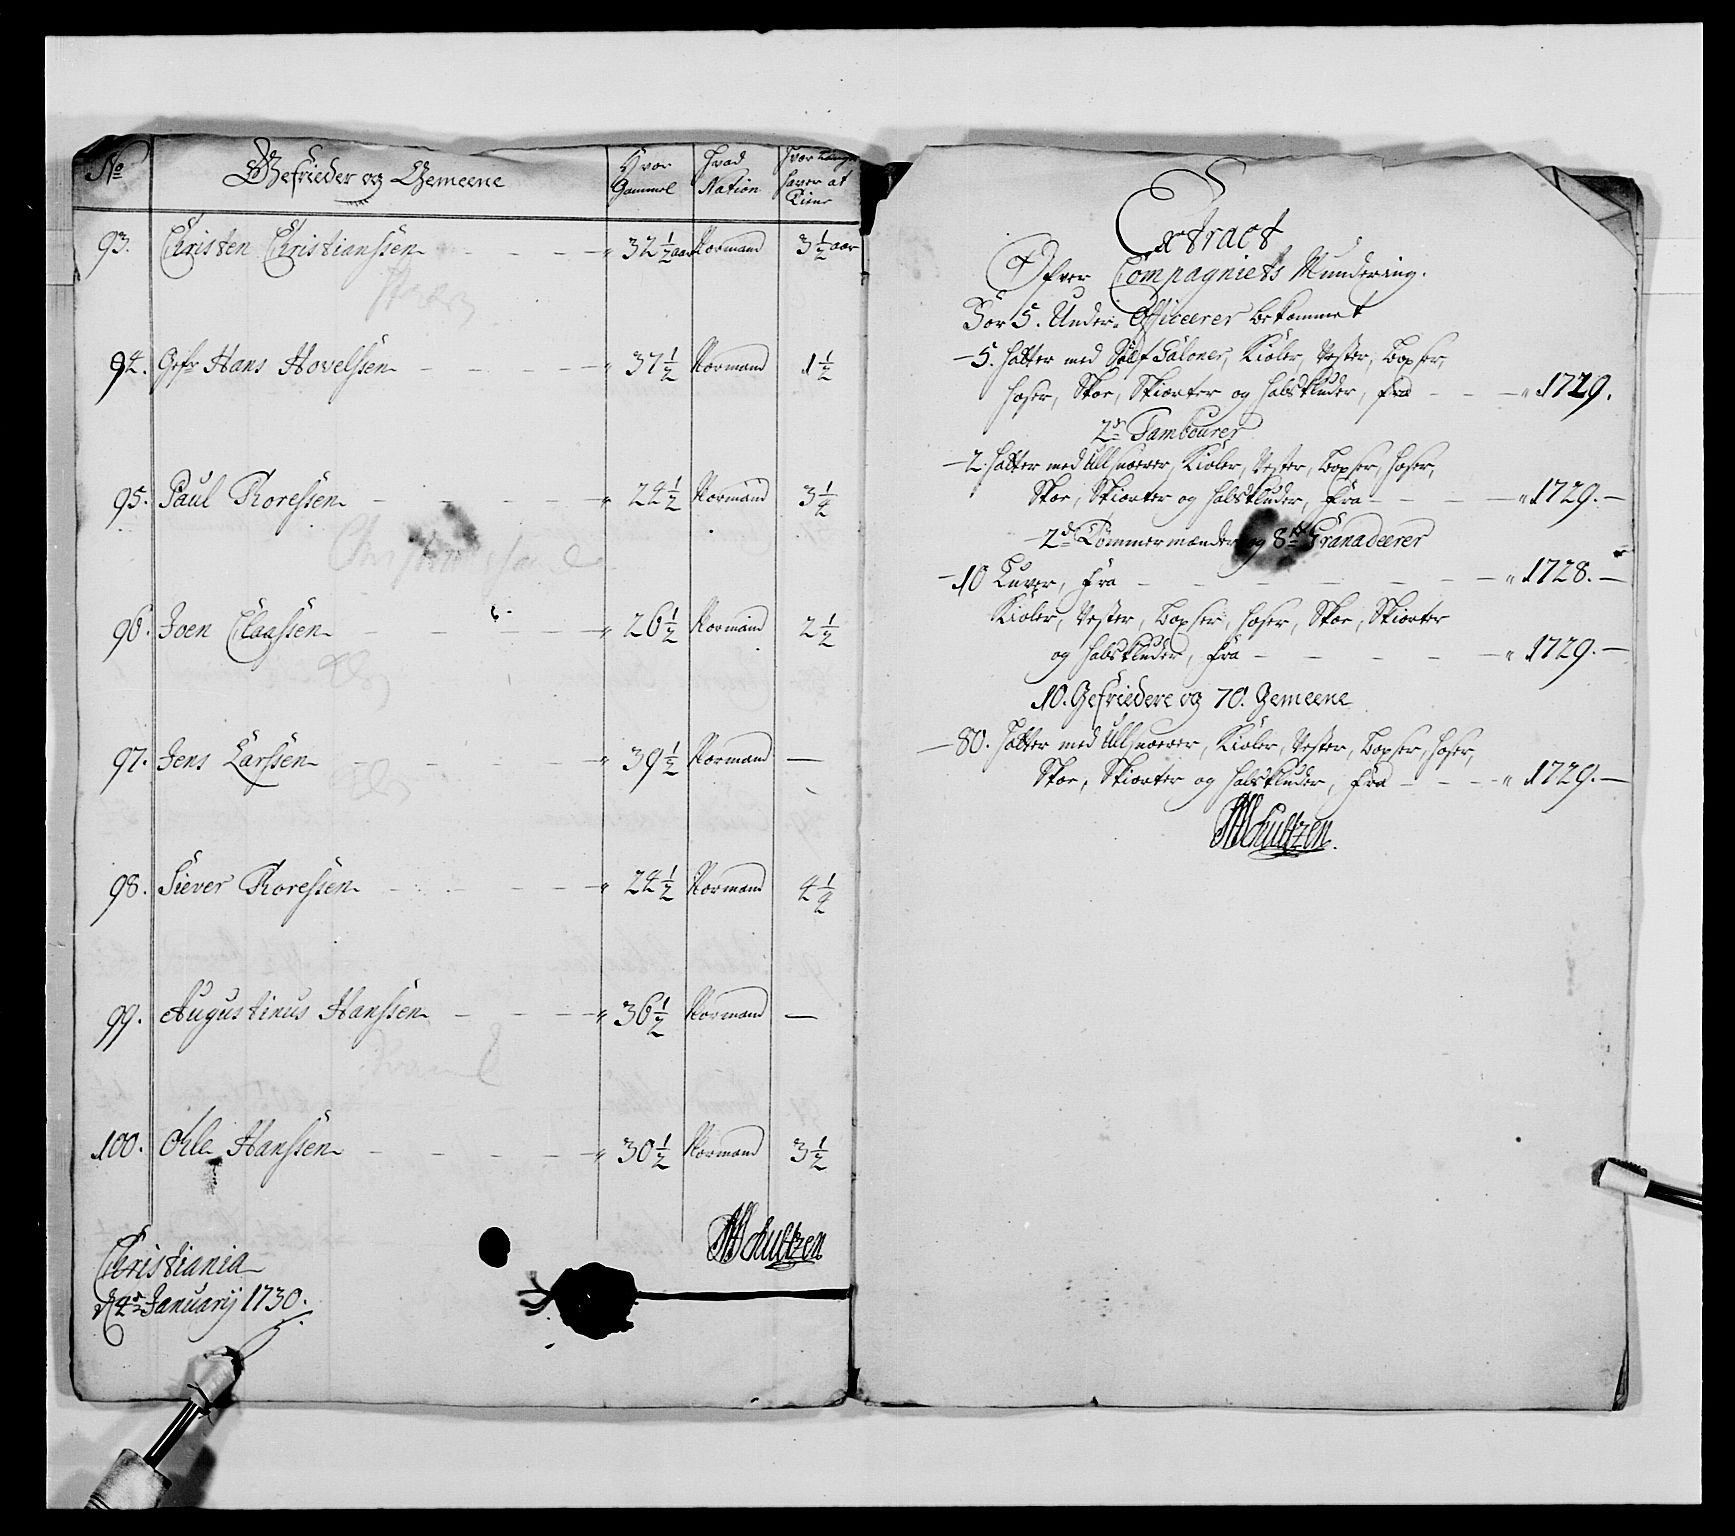 No Gefrieder og Gemeene Hvor Gammel Hvad Nation Hvor Længe haver at Tiene
93. Christen Christianssen 32 1/2 aar Normand 3 1/2 aar
94. Gefr Hans Hovelssen 37 1/2 Normand 1 1/2
95. Paul Thoressen 24 1/2 Normand 3 1/4
Christiansand
96. Joen Claassen 26 1/2 Normand 2 1/2
97. Jens Larssen 39 1/2 Normand —
98. Siever Thoressen 24 1/2 Normand 4 1/4
99. Augustinus Hanssen 36 1/2 Normand —
100. Ohle Hanssen 30 1/2 Normand 3 1/2
Christiania
d 4de January 1730.
Schultzen
Extract
Ofver Compagniets Mundering.
For 5. Under-Officerer bekommet
— 5. Hatter med Sølf Galoner, Kioler, Vester, Boxser,
Hoser, Skoe, Skiorter og Halskluder, fra — — " 1729.
2de Tambourer
— 2. Hatter med Ullsnorer, Kioler, Vester, Boxser, Hoser,
Skoe, Skiorter og Halskluder, fra — — " 1729. —
2de Tømmermænder og 8te Granadeerer
— 10 Luver, fra — — " 1728. —
Kioler, Vester, Boxser, Hoser, Skoe, Skiorter
og Halskluder, fra — — " 1729. —
10. Gefriedere og 70. Gemeene
— 80. Hatter med Ullsnorer, Kioler, Vester, Boxser, Hoser,
Skoe, Skiorter og Halskluder, fra — — " 1729. —
Schultzen.